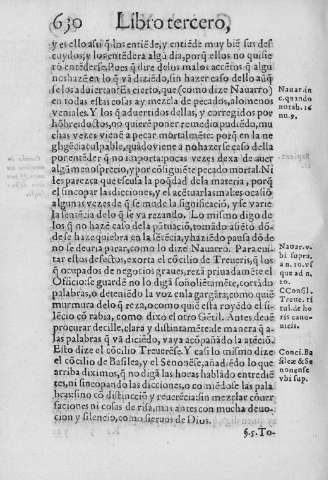 630 Libro tercero,
y es ello assi q̃ los entiẽde, y entiẽde muy biẽ sus des
cuydos, y los entẽdera algũ dia, porq̃ ellos no quisie
rõ entẽderse. Pues q̃ dire de los malos accẽtos q̃ algu
nos hazẽ en lo q̃ vã diziẽdo, sin hazer caso dello aũq̃
se los aduiertan? Es cierto, que (como dize Nauarro)
en todas estas cosas ay mezcla de pecados, alomenos
veniales. Y los q̃ aduertidos dellas, y corregidos por
hõbres doctos, no quierẽ poner remedio pudiẽdo, mu
chas vezes vienẽ a pecar mortalmẽte porq̃ en la ne
gligẽcia culpable, quãdo viene a no hazerse caso della
por entẽder q̃ no importa: pocas vezes dexa de auer
algũ menosprecio, y por cõsiguiẽte pecado mortal. Ni
les parezca que escusa la poq̃dad dela materia, porq̃
el sincopar las dictiones, y el acẽtuarlas mal es ocasiõ
algunas vezes de q̃ se mude la significaciõ, y se varie
la sentẽcia delo q̃ se va rezando. Lo mismo digo de
los q̃ no hazẽ caso dela pũtuaciõ, tomãdo aliẽto dõ-
de se haze quiebra en la sentẽcia, y haziẽdo pausa dõ de
no se deuria parar, como lo dize Nauarro. Para eui-
tar estos defectos, exorta el cõcilio de Treueris, que los
q̃ ocupados de negocios graues, rezã priuadamẽte el
Officio: se guardẽ no lo digã soñoliẽtamẽte, cortãdo
palabras, o deteniẽdo la voz en la gargãta, como quiẽ
murmura delo q̃ reza, o como quiẽ esta royẽdo el si-
lẽcio cõ rabia, como dixo el otro Gẽtil. Antes deuẽ
procurar dezille, clara y distintamẽte: de manera q̃ a-
las palabras q̃ vã diziẽdo, vaya acõpañado la atẽciõ.
Esto dize el cõcilio Treuerẽse. Y casi lo mismo dize
el cõcilio de Basilea, y el Senonese, añadiẽdo lo que
arriba diximos, q̃ no digã las horas hablãdo entrediẽ
tes, ni sincopando las dicciones, o comiẽdo se las pala-
bras: sino cõ distinctiõ y reuerẽcia: sin mezclar cõuer
saciones ni cosas de risa, mas antes con mucha deuo-
cion y silencio, como sieruos de Dios.
§. 5. To-
Nauar. in
c. quando
notab. 16
nu. 9.
Nauar. v-
bi supra,
a n. 10. vs
que ad n.
20.
CConsil.
Treue. ti
tul. de ho
ris cano-
nicis.
Conci. Ba
silez & Se
nonense
vbi sup.